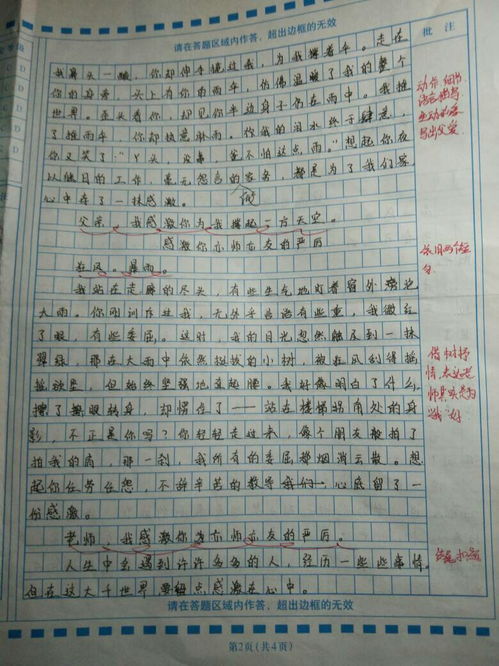 请在答题区域内作答，超出边框的无效
批 注
我鼻头一酸，你却伸手揽过我，为我撑着伞。走在
你的身旁，头上有你的雨伞，仿佛温暖了我的整个
世界。歪头看你，却见你半边身子仍在雨中。我推
了推雨伞，你却执意淋雨。你我的泪水终于肆意，
你又笑了：“丫头，没事，爸不怕这点雨。”想起你夜
以继日的工作，毫无怨言的家务，都是为了我们家
心中存了一抹感激。
父亲，我感激你为我撑起一方天空。
感激你亦师亦友的严厉
狂风。暴雨。
我站在走廊的尽头，有些生气地盯着窗外
大雨。你刚训斥过我，无外乎
了眼，有些委屈。这时，我的目光忽然触及到一抹
翠绿，那在大雨中依然挺拔的小树，被狂风刮得摇
摇欲坠，但始终坚强地直起腰。我好像明白了什么，
擦了擦眼转身，却愣在了——站在楼梯拐角处的身
影，不正是你吗？你轻轻走过来，像个朋友般拍了
拍我的肩，那一刹，我所有的委屈都烟消云散。想
起你任劳任怨，不辞辛苦的教导我们，心底留了一
份感激。
老师，我感激你亦师亦友的严厉。
人生中会遇到许许多多的人，经历一些些事情。
但在这大千世界 要 点感激在心中。
动作 细节
语言描写
写出父爱
借物抒
情
请在答题区域内作答，超出边框的无效
第2页(共4页)